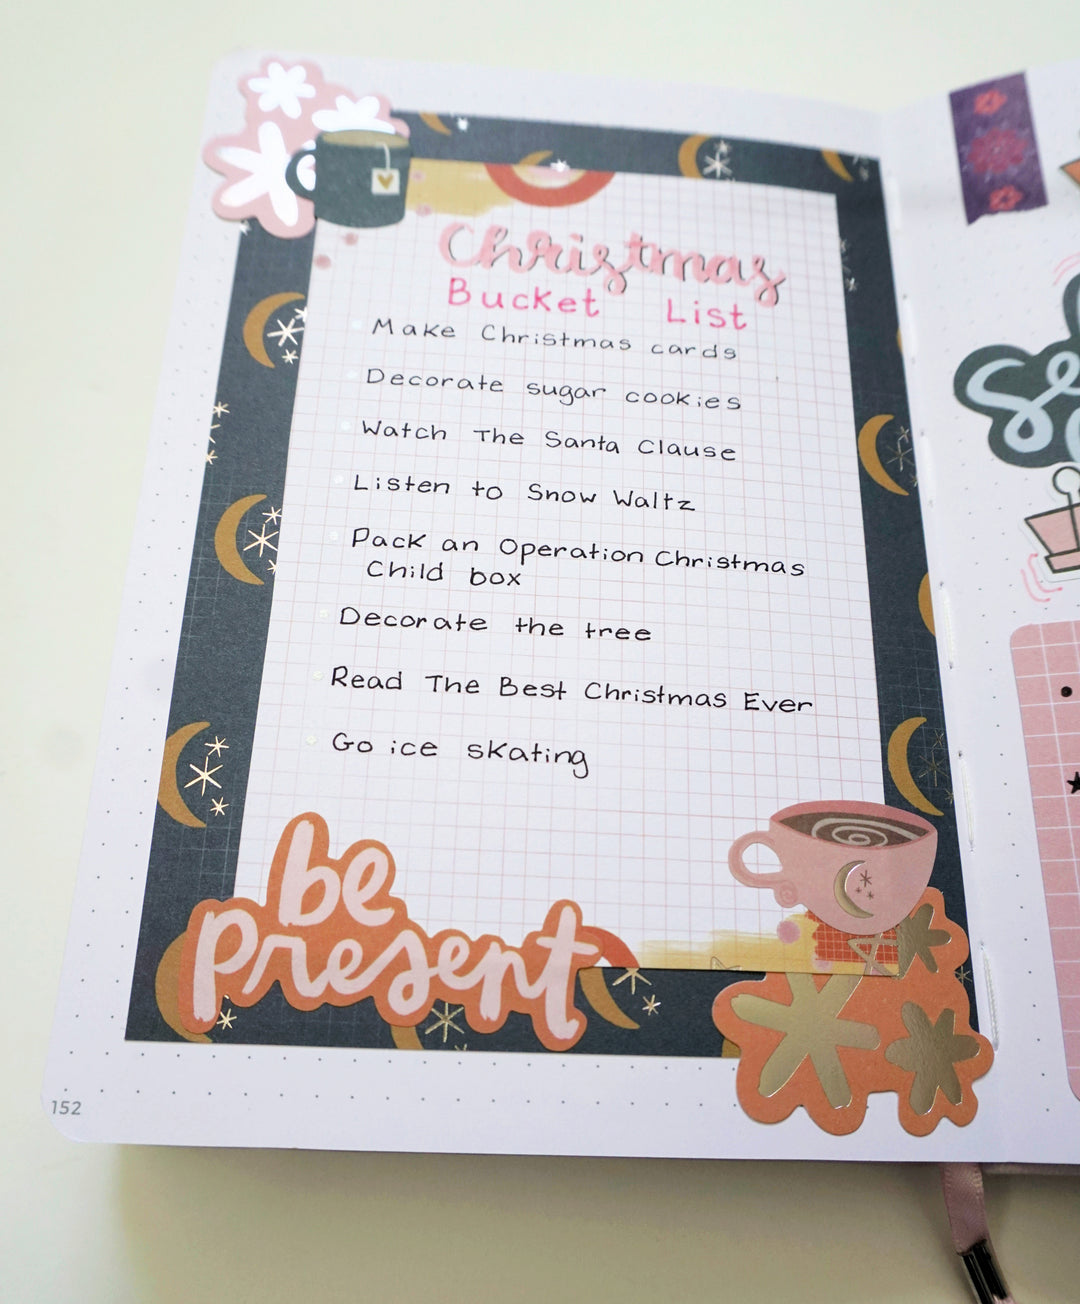 Christmas
Bucket List
Make Christmas cards
Decorate sugar cookies
Watch The Santa Clause
Listen to Snow Waltz
Pack an Operation Christmas
Child box
Decorate the tree
Read The Best Christmas Ever
Go ice skating
be
present
152